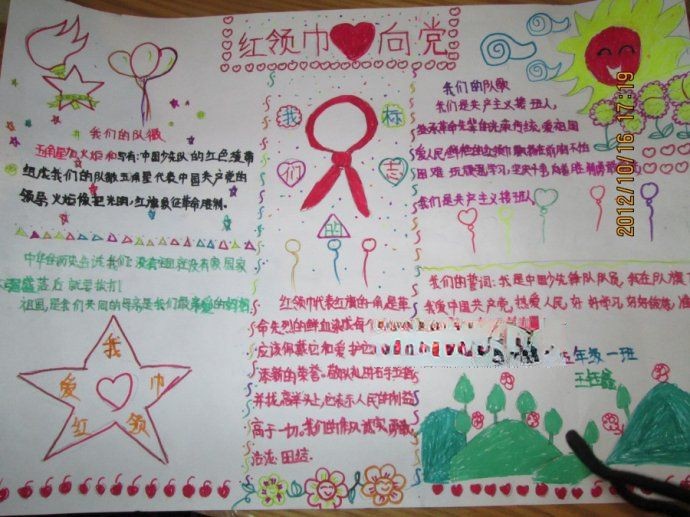 红领巾向党
我们的标志
我们的队徽
五角星加火炬和写有:中国少先队的红色绶带
组成我们的队徽五角星代表中国共产党的
领导,火炬像征光明,红旗象征革命胜利.
中华的历史告诉我们:没有祖国就没有家 国家
落后 就要挨打!
祖国,是我们共同的母亲是我们最亲爱的妈妈
我爱红领巾
红领巾代表红旗的一角是革
命先烈的鲜血染成每
应该佩戴它和爱护它
添新的荣誉。敬队礼用右手五指
并拢高举头上,它表示人民的利益
高于一切。我们的作风诚实勇敢
活泼 团结.
我们的队歌
我们是共产主义接班人,
继承革命先辈的光荣传统,爱祖国
爱人民鲜艳的红领巾飘扬在前胸不怕
困难
我们是共产主义接班人
我们的誓词:我是中国少先队队员,我在队旗下
我爱中国共产党,热爱人民,好好学习,好好锻炼,准
五年级一班
2012/10/16 17:19